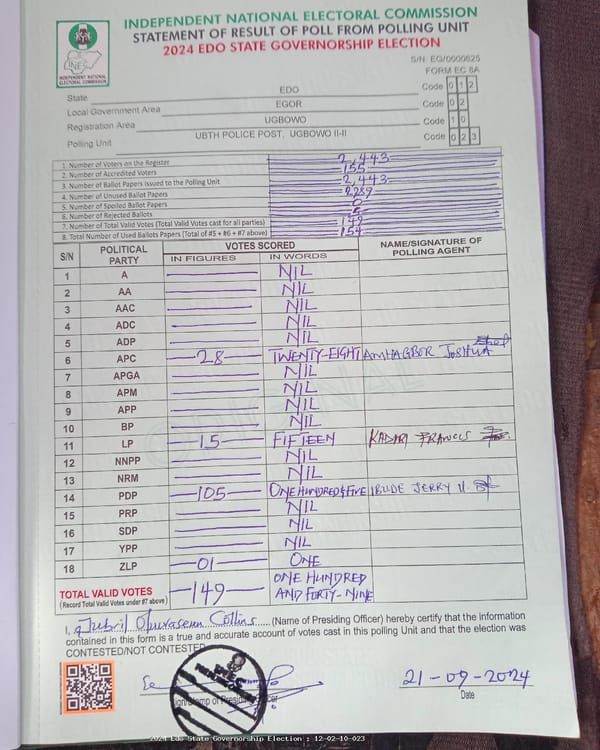 INDEPENDENT NATIONAL ELECTORAL COMMISSION
STATEMENT OF RESULT OF POLL FROM POLLING UNIT
2024 EDO STATE GOVERNORSHIP ELECTION
INEC
INDEPENDENT NATIONAL ELECTORAL COMMISSION
S/N: EG/0000625
FORM EC 8A
State EDO Code 0 1 2
Local Government Area EGOR Code 0 2
Registration Area UGBOWO Code 1 0
Polling Unit UBTH POLICE POST, UGBOWO II-II Code 0 2 3
1. Number of Voters on the Register 2,443
2. Number of Accredited Voters 155
3. Number of Ballot Papers Issued to the Polling Unit 2,443
4. Number of Unused Ballot Papers 2,289
5. Number of Spoiled Ballot Papers 0
6. Number of Rejected Ballots 5
7. Number of Total Valid Votes (Total Valid Votes cast for all parties) 149
8. Total Number of Used Ballots Papers (Total of #5 + #6 + #7 above) 154
S/N POLITICAL PARTY VOTES SCORED NAME/SIGNATURE OF POLLING AGENT
IN FIGURES IN WORDS
1 A NIL
2 AA NIL
3 AAC NIL
4 ADC NIL
5 ADP NIL
6 APC 28 TWENTY-EIGHT AMHAGBOR JOSHUA
7 APGA NIL
8 APM NIL
9 APP NIL
10 BP NIL
11 LP 15 FIFTEEN KADIRI FRANCIS
12 NNPP NIL
13 NRM NIL
14 PDP 105 ONE HUNDRED & FIVE JERRY
15 PRP NIL
16 SDP NIL
17 YPP NIL
18 ZLP 01 ONE
TOTAL VALID VOTES 149 ONE HUNDRED AND FORTY-NINE
(Record Total Valid Votes under #7 above)
I, Jubril Collins (Name of Presiding Officer) hereby certify that the information
contained in this form is a true and accurate account of votes cast in this polling Unit and that the election was
CONTESTED/NOT CONTESTED.
Sign/Stamp of Presiding Officer
21-09-2024
Date
2024 Edo State Governorship Election : 12-02-10-023